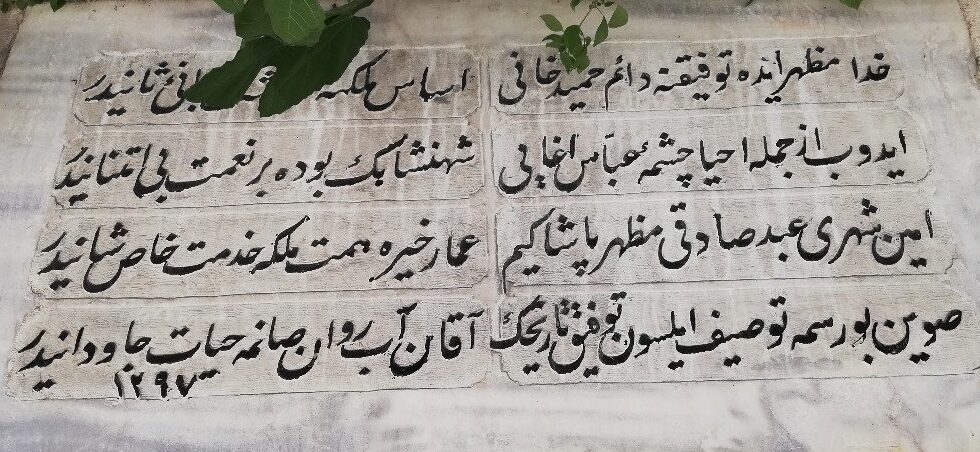 خدا مظهر ایده توفیقنه دائم حمید خانی
اساس ملکنه بانئ ثانیدر
ایدوب از جمله احیا چشمهٔ عباس اغایی
شهنشاهک بوده بر نعمت بی امتنانیدر
امین شهری عبد صادقی مظهر پاشا کیم
عمار خیره همت ملکه خدمت خاص شانیدر
صوین بو رسمه توصیف ایلسون توفیق تاریخک
آقان آب روان صانمه حیات جاودانیدر
١٢٩٧